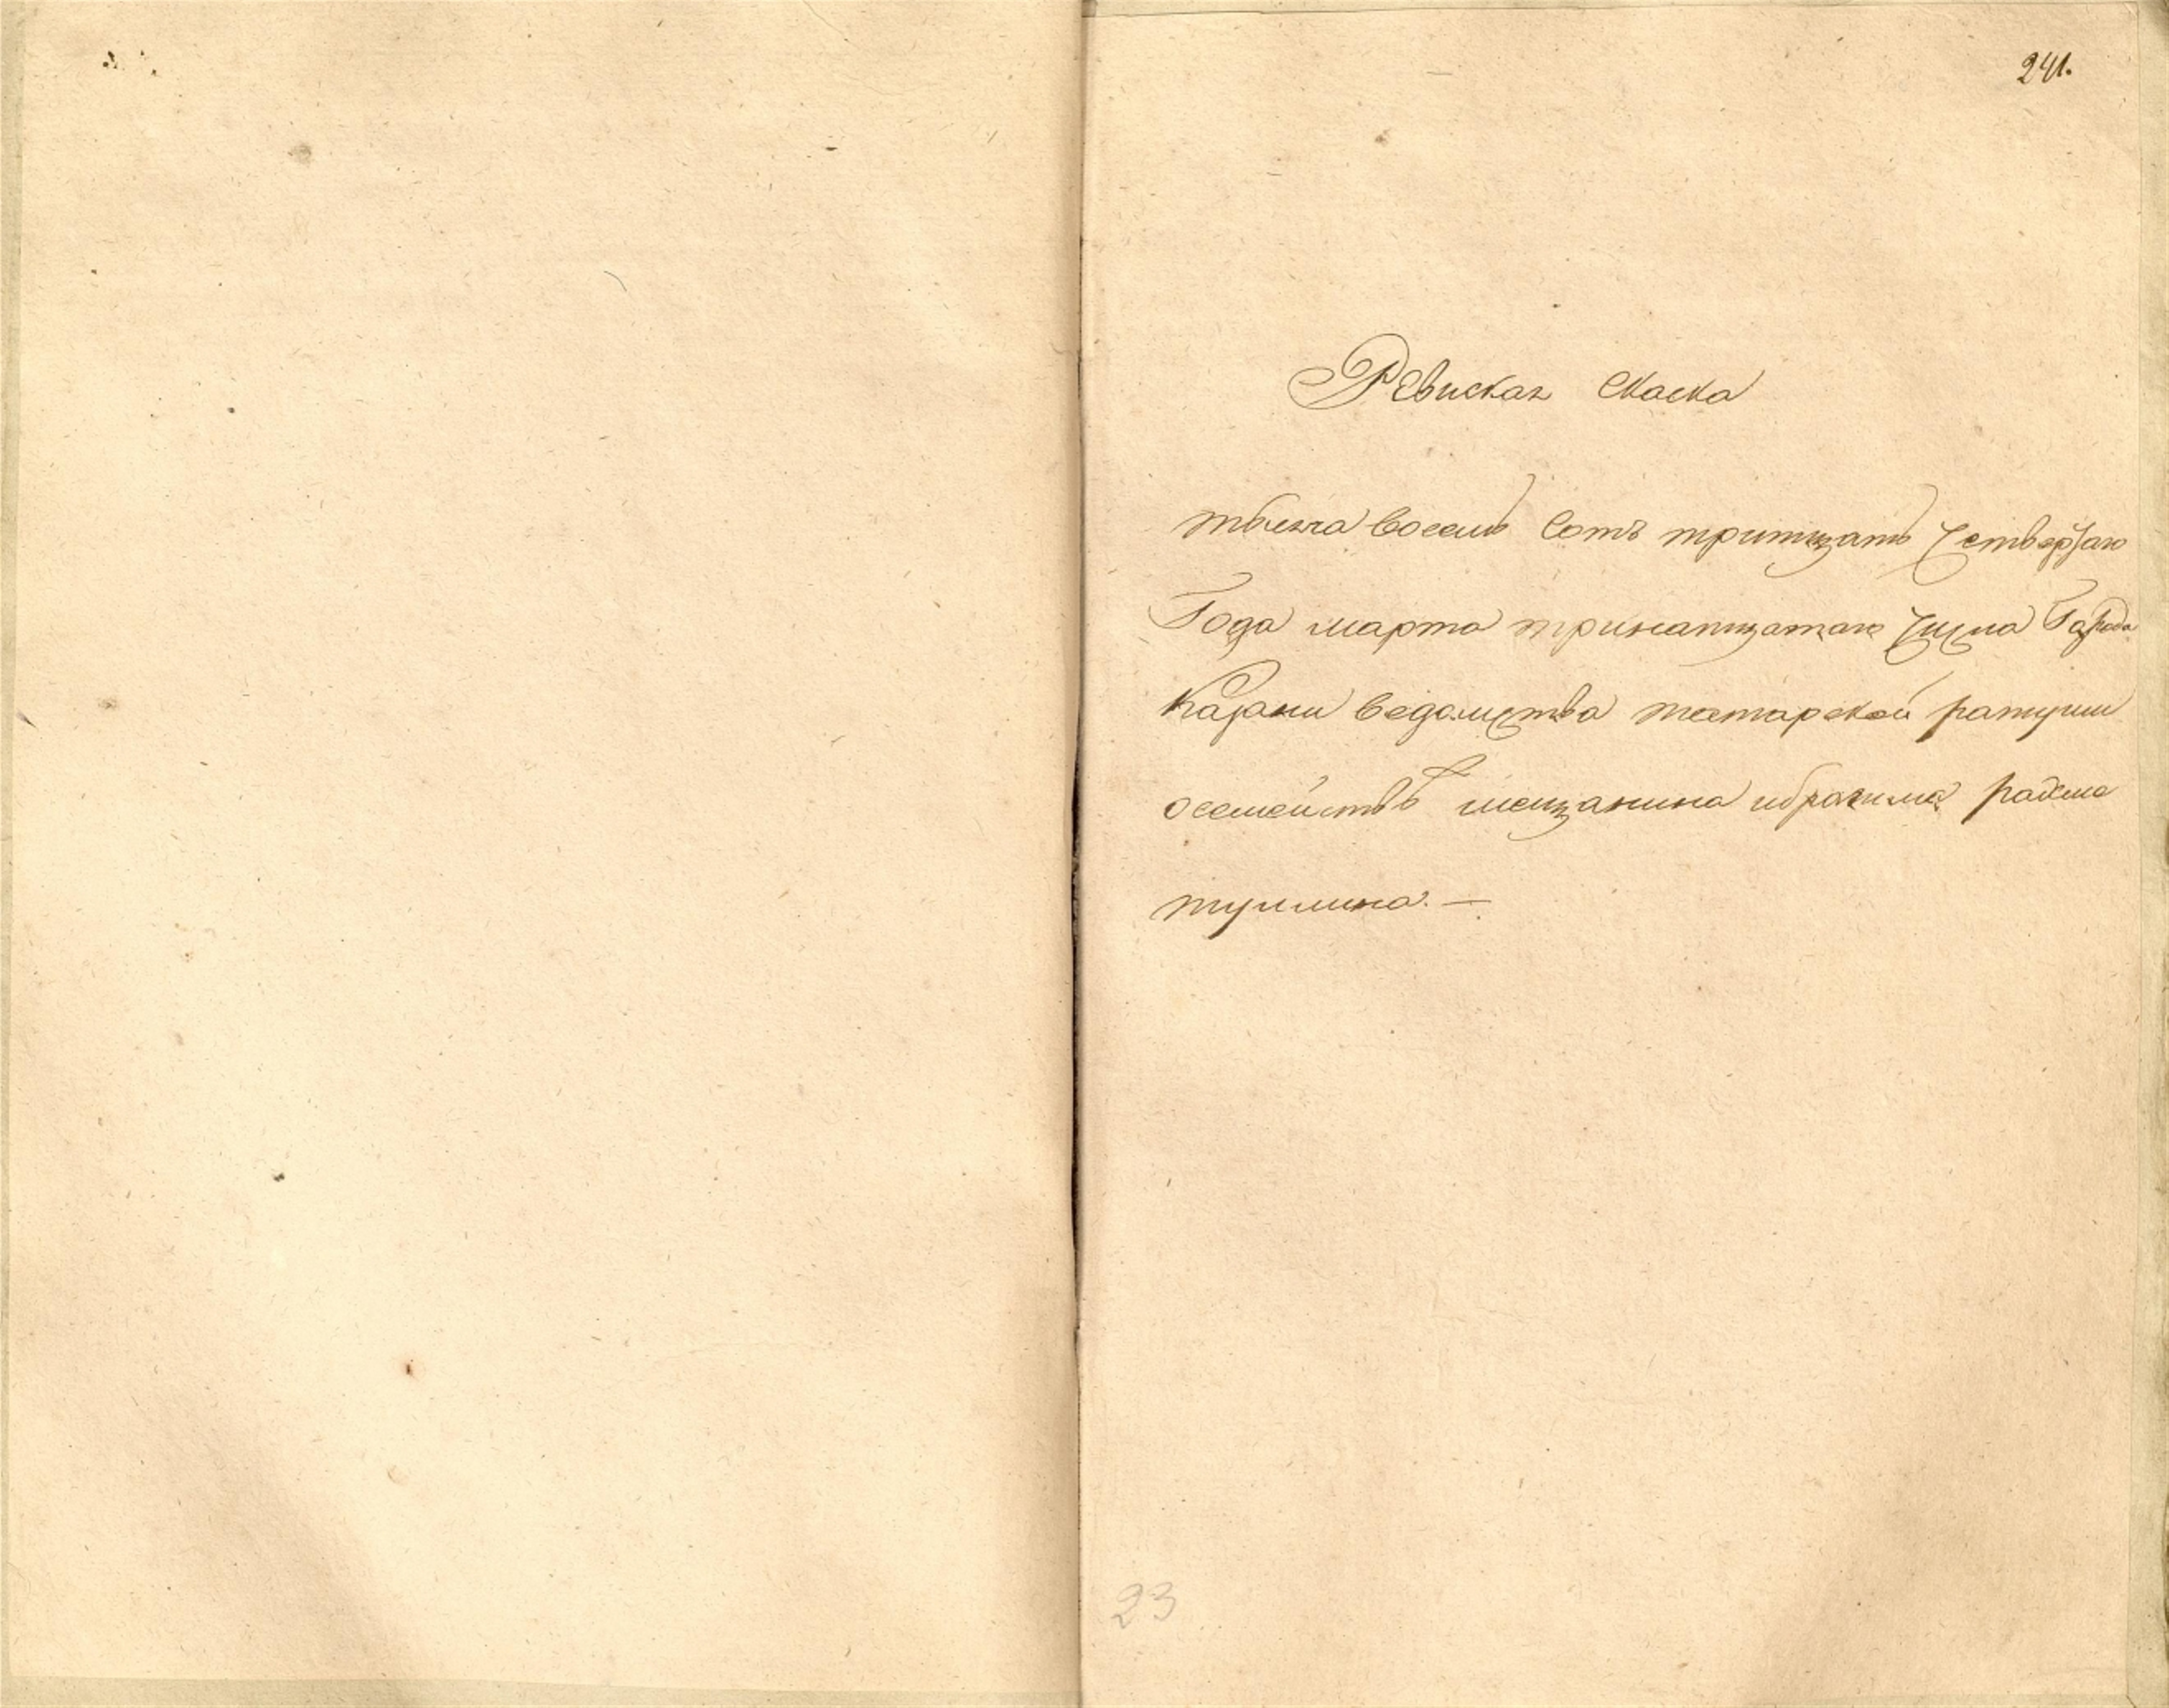 241.
Ревиская Скаска
тысяча восемь Сотъ тритцать четвертаго
Года марта тринатцатаго числа Города
Казани ведомства татарской ратуши
осемействѣ мещанина ибрагима
23